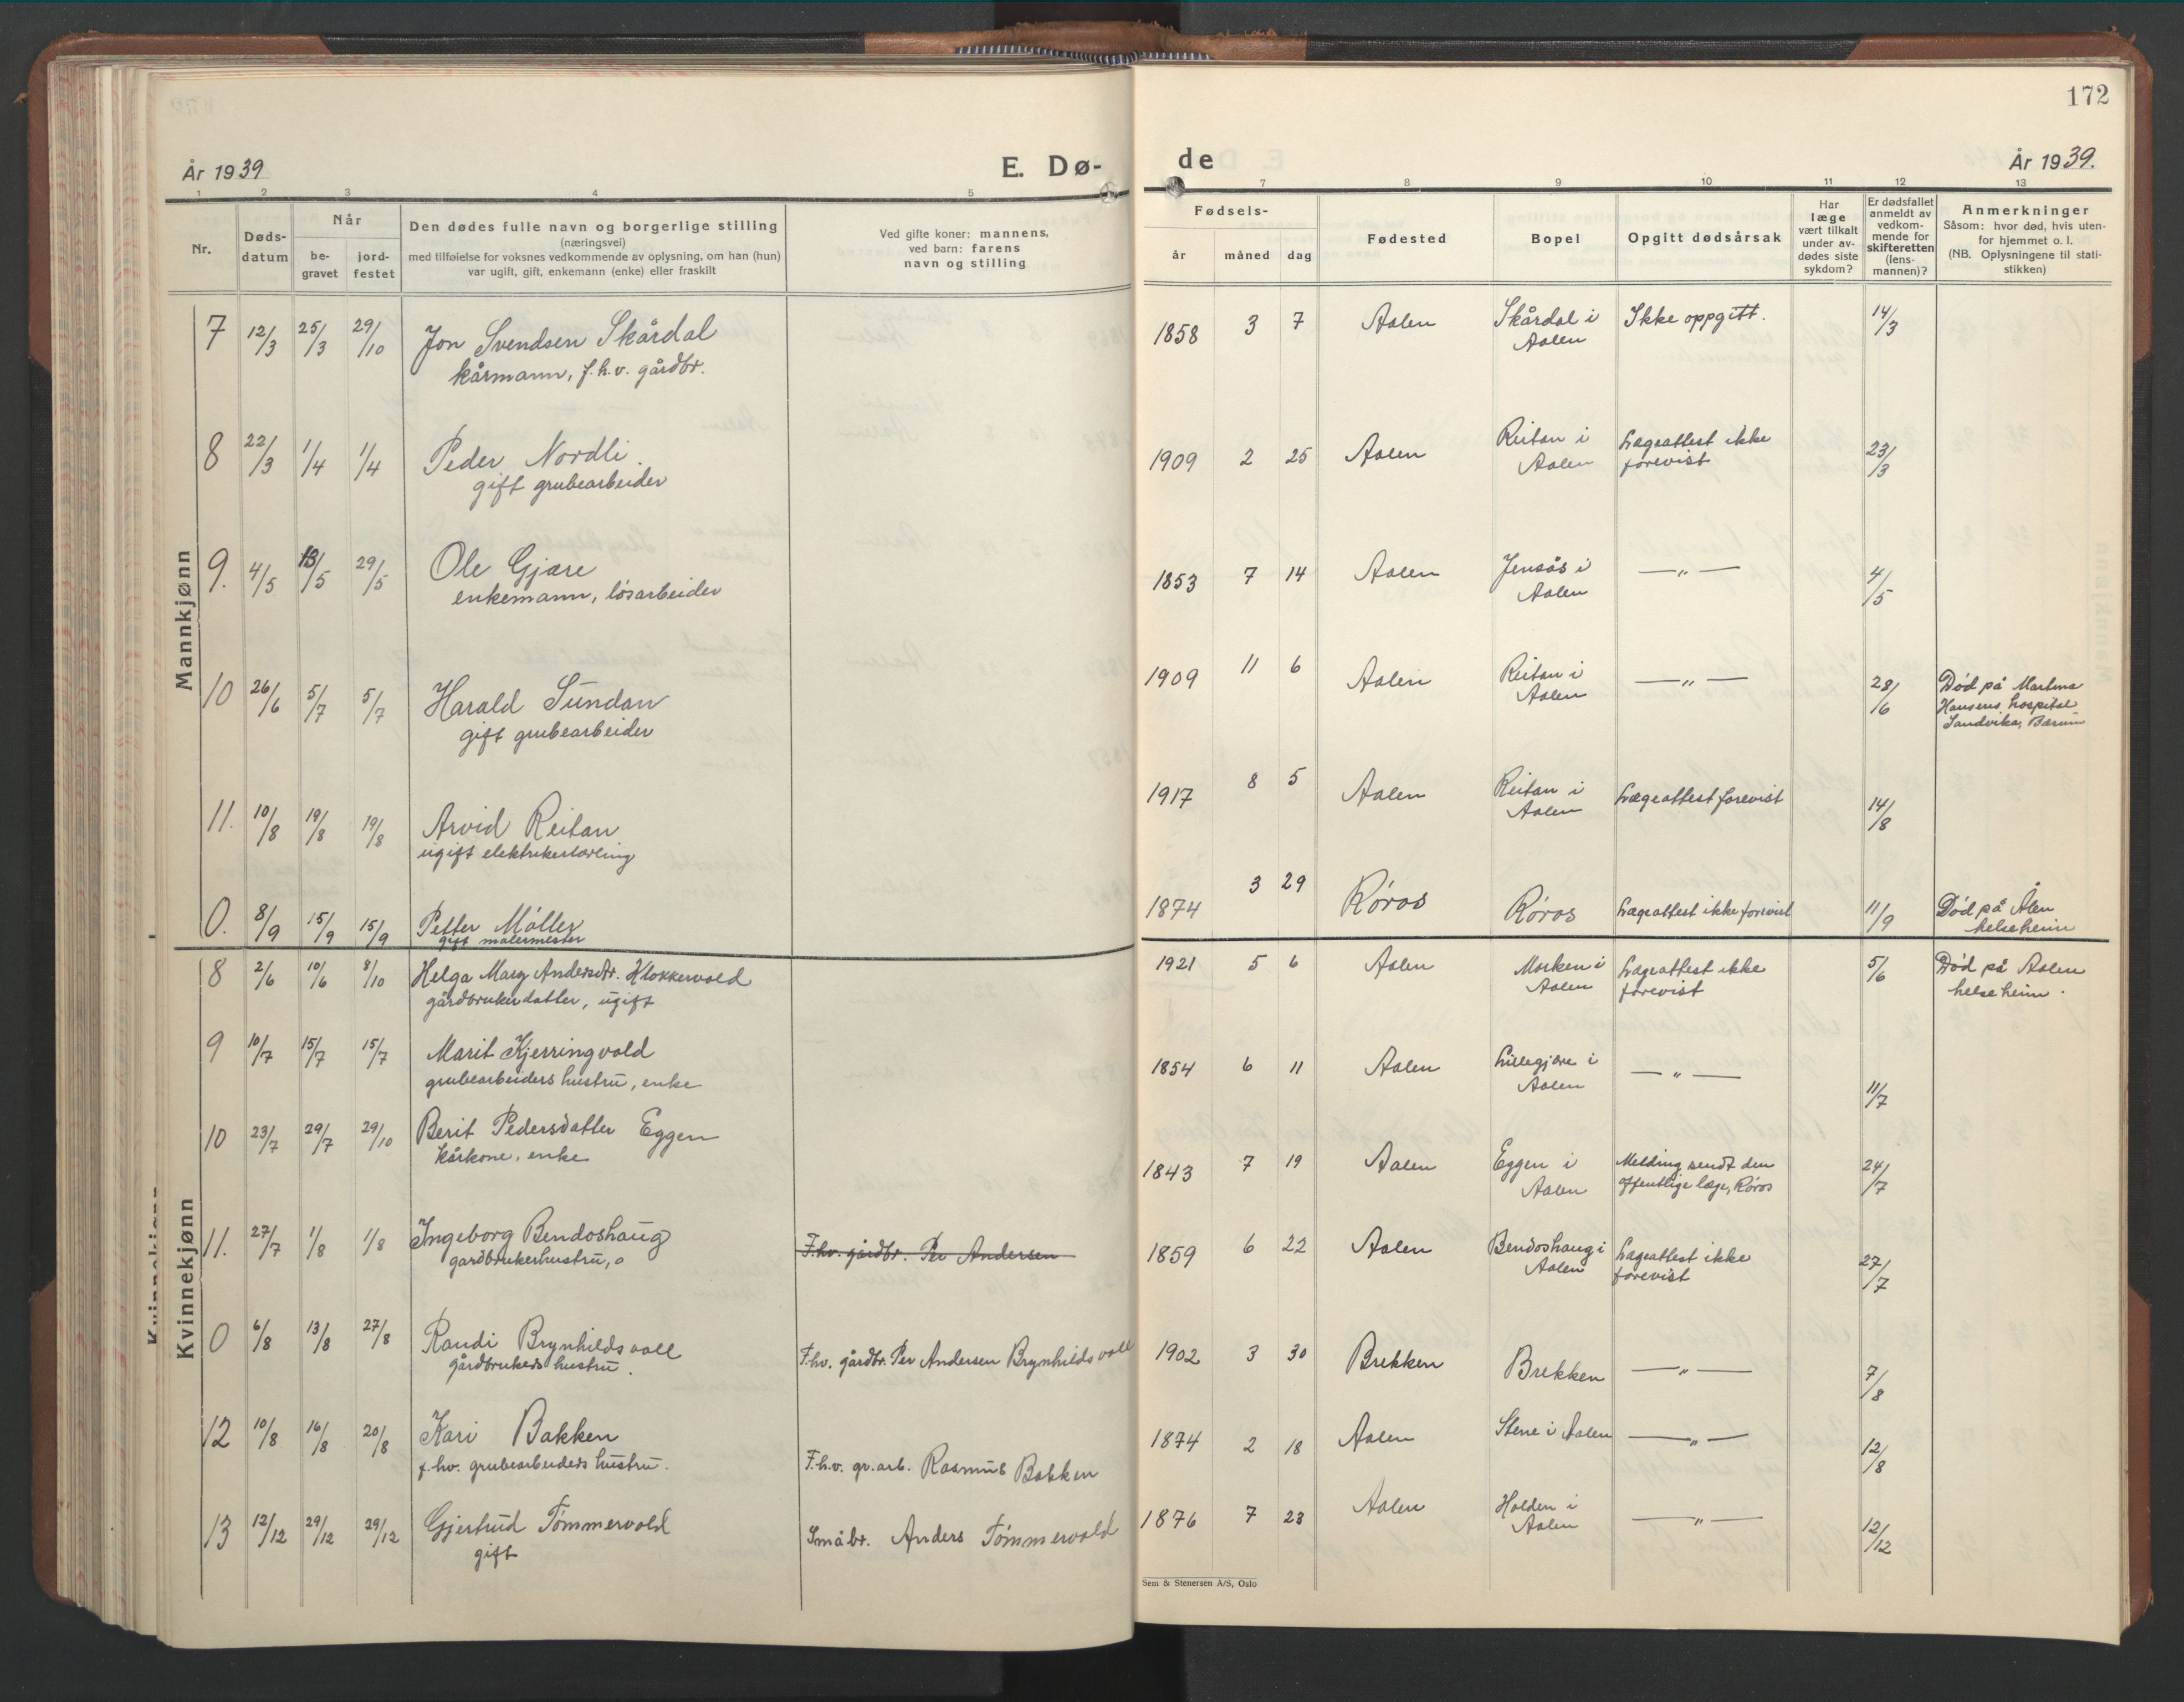 172
År 1939
E. Dø-
de
År 1939.
1 2 3 4 5
7 8 9 10 11 12 13
Nr.
Døds-
datum
Når
be-
gravet
jord-
festet
Den dødes fulle navn og borgerlige stilling
(næringsvei)
med tilføielse for voksnes vedkommende av oplysning, om han (hun)
var ugift, gift, enkemann (enke) eller fraskilt
Ved gifte koner: mannens,
ved barn: farens
navn og stilling
Fødsels-
år måned dag
Fødested
Bopel
Opgitt dødsårsak
Har
læge
vært tilkalt
under av-
dødes siste
sykdom?
Er dødsfallet
anmeldt av
vedkom-
mende for
skifteretten
(lens-
mannen)?
Anmerkninger
Såsom: hvor død, hvis uten-
for hjemmet o. l.
(NB. Oplysningene til stati-
stikken)
Mannkjønn
7 12/3 25/3 29/10 Jon Svendsen Skårdal 1858 3 7 Aalen Skårdal i Ikke oppgitt. 14/3
kårmann, f.h.v. gårdbr. Aalen
8 22/3 1/4 1/4 Peder Nordli 1909 2 25 Aalen Reitan i Lægeattest ikke 23/3
gift grubearbeider Aalen forevist
9. 4/5 13/5 29/5 Ole Gjære 1853 7 14 Aalen Jensås i —„— 4/5
enkemann, løsarbeider Aalen
10 26/6 5/7 5/7 Harald Sundan 1909 11 6 Aalen Reitan i —„— 28/6 Død på Martina
gift grubearbeider Aalen Hansens hospital
Sandvika, Bærum
11. 10/8 19/8 19/8 Arvid Reitan 1917 8 5 Aalen Reitan i Lægeattest forevist 14/8
ugift elektrikerlærling Aalen
0. 8/9 15/9 15/9 Petter Møller 1874 3 29 Røros Røros Lægeattest ikke forevist 11/9 Død på Ålen
gift malermester helseheim
Kvinnekjønn
Kvinnekjønn
8 2/6 10/6 8/10 Helga Marg Andersdtr. Klokkervold 1921 5 6 Aalen Morken i Lægeattest ikke 5/6 Død på Aalen
gårdbruker datter, ugift Aalen forevist helseheim.
9 10/7 15/7 15/7 Marit Kjerringvold 1854 6 11 Aalen Lillegjære i —„— 11/7
grubearbeiders hustru, enke Aalen
10 23/7 29/7 29/10 Berit Pedersdatter Eggen 1843 7 19 Aalen Eggen i Melding sendt den 24/7
kårkone, enke Aalen offentlige læge, Røros
11. 27/7 1/8 1/8 Ingeborg Bendoshaug F.hv. gårdbr. Per Andersen 1859 6 22 Aalen Bendoshaug i Lægeattest ikke 27/7
gardbrukerhustru, Aalen forevist
0 6/8 13/8 27/8 Randi Brynhildsvoll F.hv. gårdbr. Per Andersen Brynhildsvoll 1902 3 30 Brekken Brekken —„— 7/8
gårdbrukers hustru.
12 10/8 16/8 20/8 Kari Bakken F.h.v. gr.arb. Rasmus Bakken 1874 2 18 Aalen Stene i Aalen —„— 12/8
f.hv. grubearbeiders hustru.
13 12/12 29/12 29/12 Gjertrud Tømmervold Småbr. Anders Tømmervold 1876 7 23 Aalen Holden i —„— 12/12
gift Aalen
Sem & Stenersen A/S, Oslo